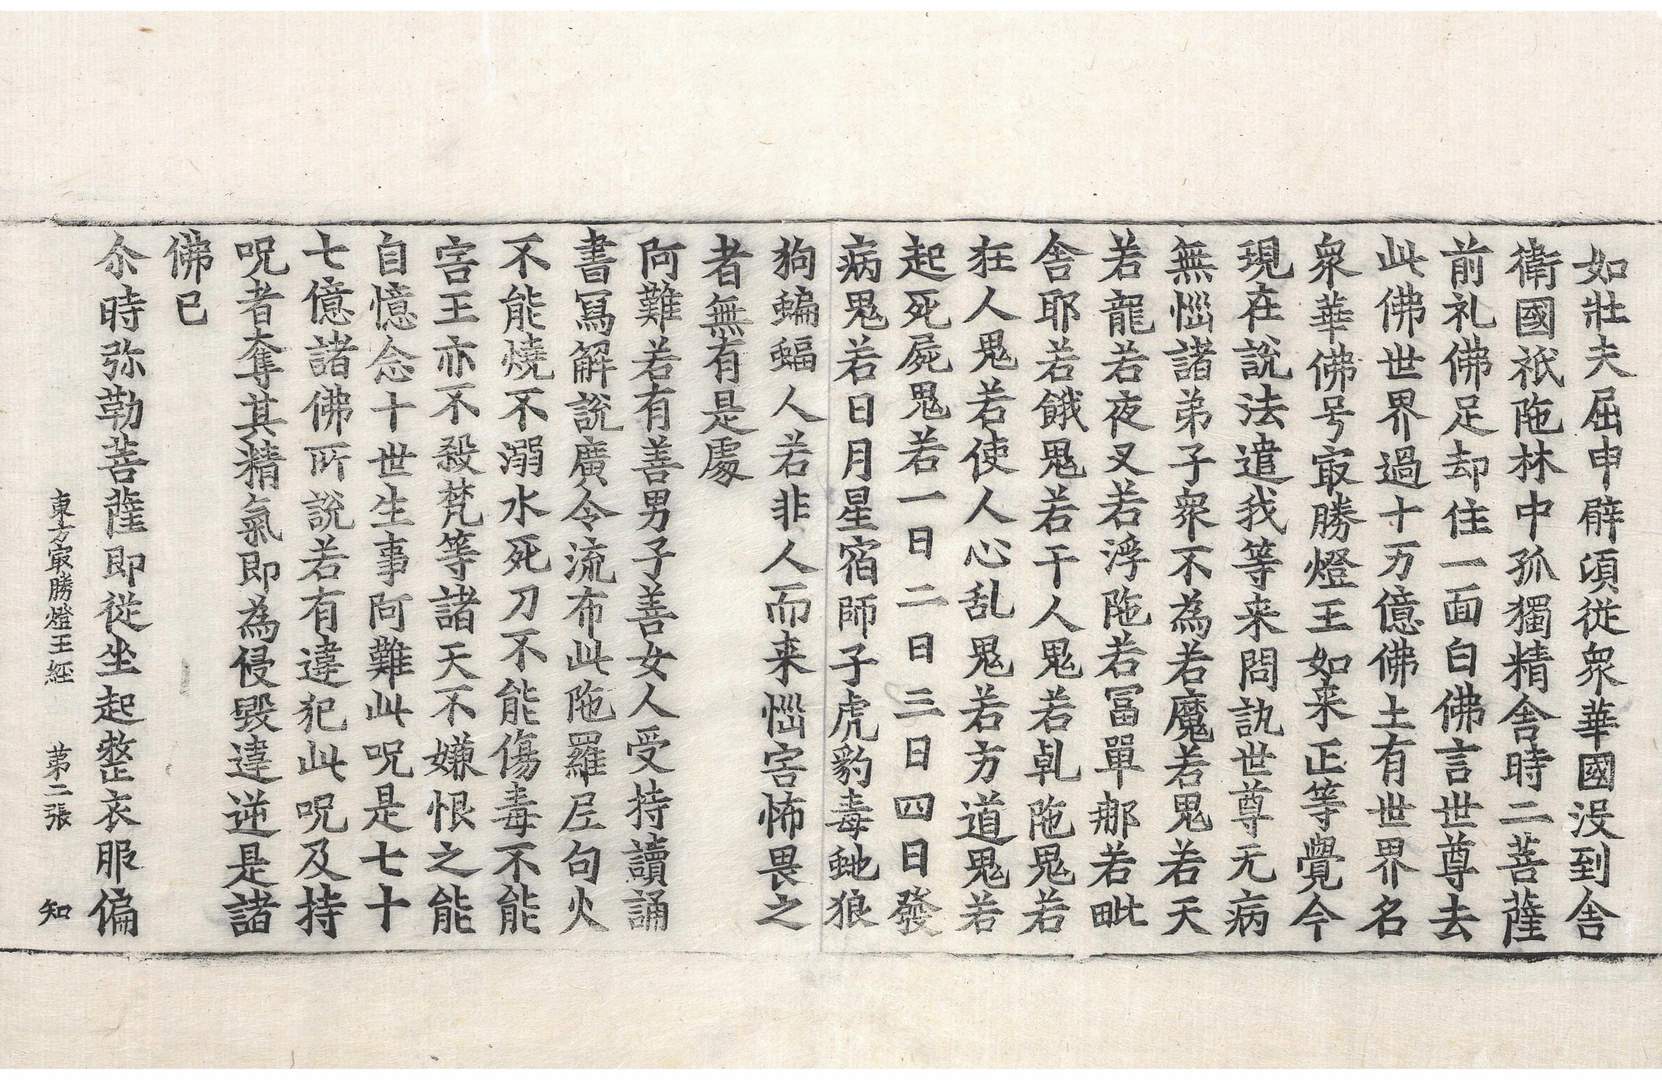 如壯夫屈申臂頃從衆華國没到舎
衛國祇陁林中孤獨精舎時二菩薩
前礼佛足却住一面白佛言世尊去
此佛世界過十万億佛土有世界名
衆華佛号㝡勝燈王如来正等覺今
現在說法遣我等来問訊世尊无病
無惱諸弟子衆不為若魔若鬼若天
若龍若夜叉若浮陁若冨單那若毗
舎耶若餓鬼若干人鬼若乹陁鬼若
狂人鬼若使人心乱鬼若方道鬼若
起死屍鬼若一日二日三日四日發
病鬼若日月星宿師子虎豹毒虵狼
狗蝙蝠人若非人而来惱害怖畏之
者無有是處
阿難若有善男子善女人受持讀誦
書寫解說廣令流布此陁羅尼句火
不能燒不溺水死刀不能傷毒不能
害王亦不殺梵等諸天不嫌恨之能
自憶念十世生事阿難此呪是七十
七億諸佛所說若有違犯此呪及持
呪者奪其精氣即為侵毀違逆是諸
佛已
尒時弥勒菩薩即從坐起整衣服偏
東方㝡勝燈王経 苐二張 知